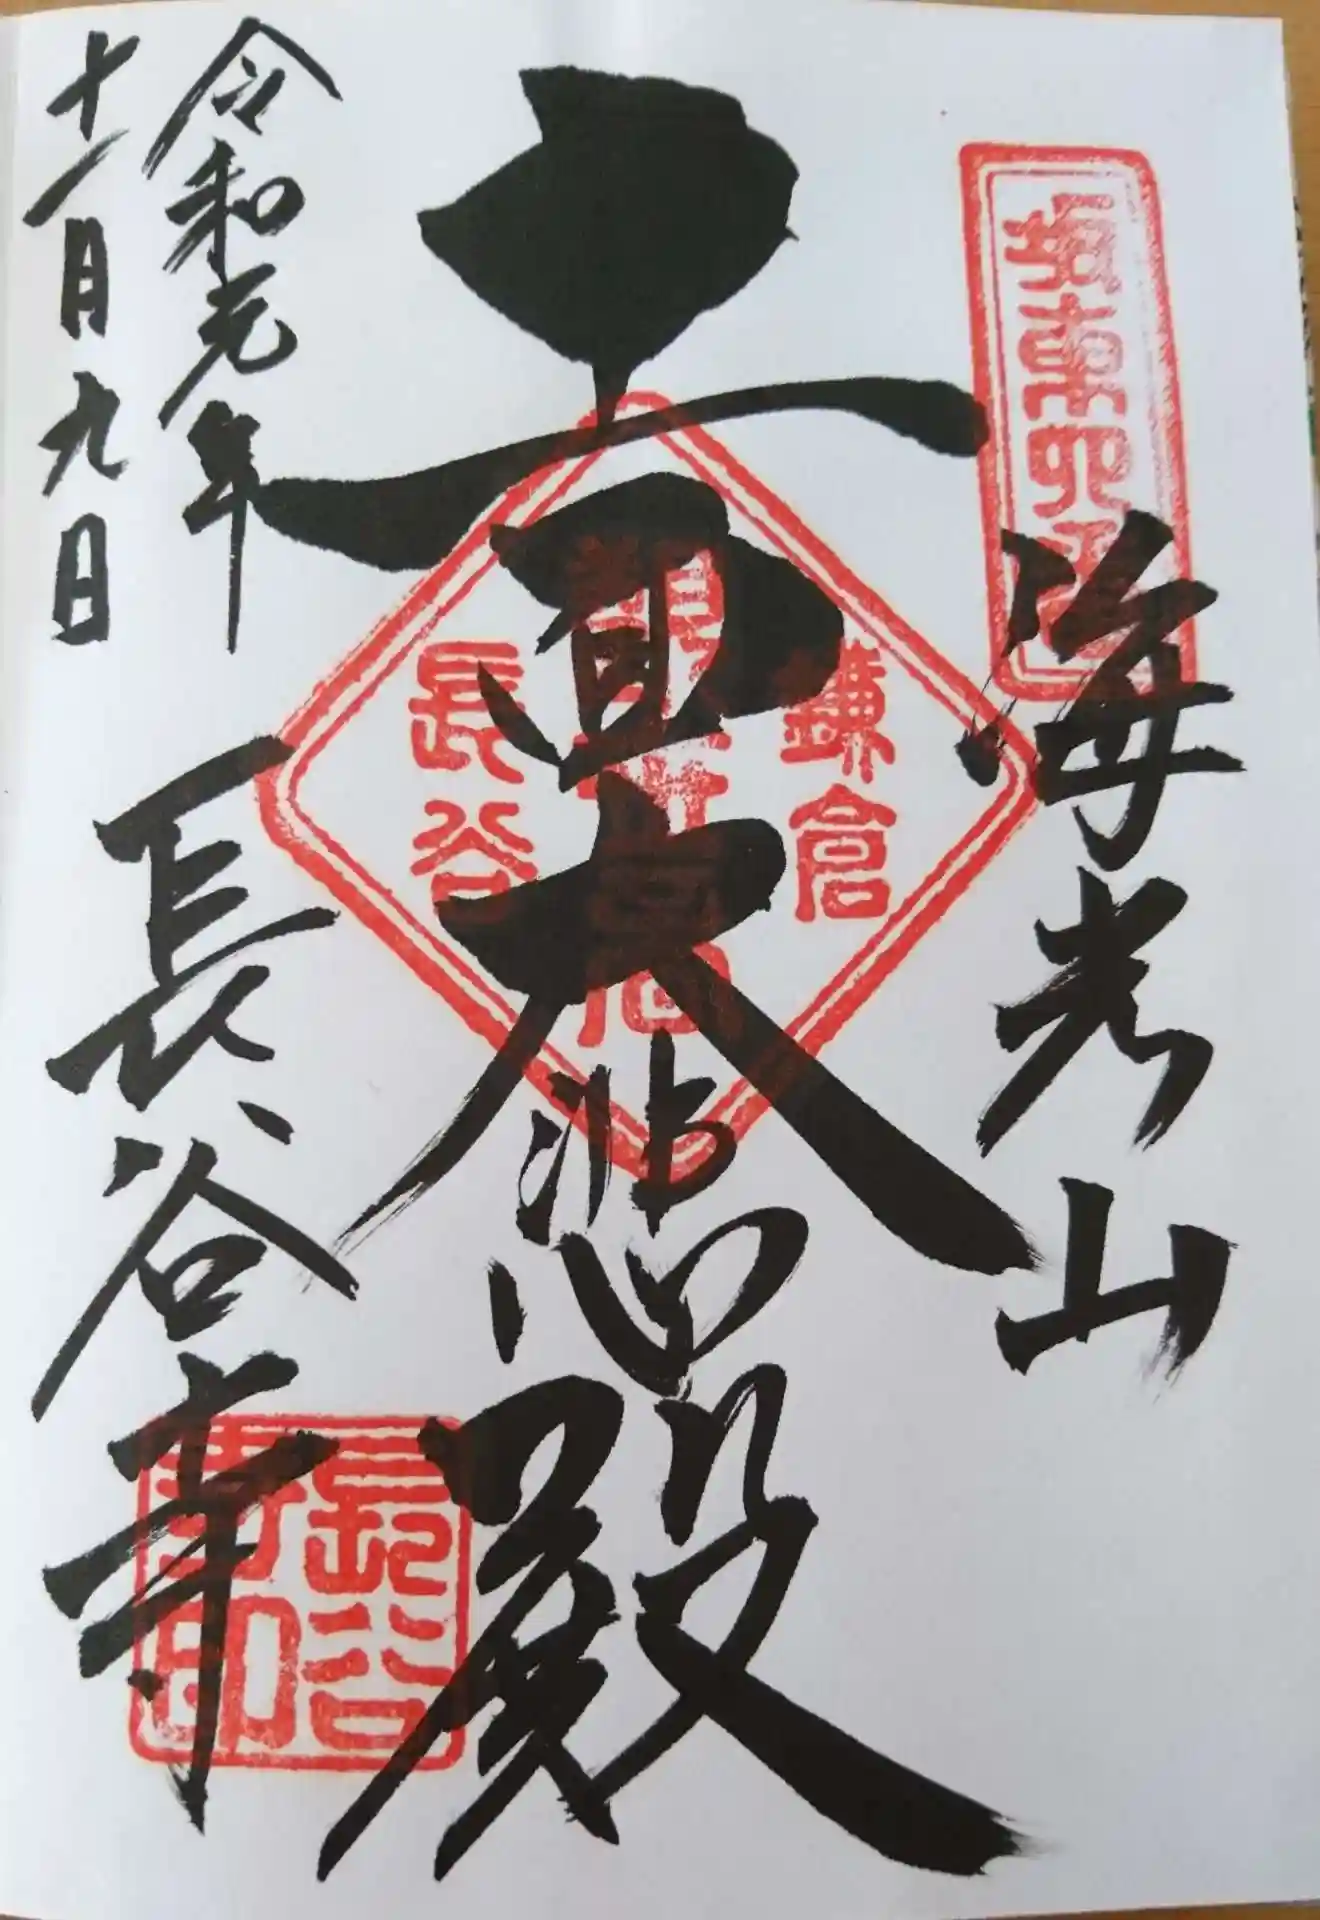 坂東四
海光山
十一面大悲殿
鎌倉
長谷
長谷寺
長谷
寺印
令和元年
十一月九日